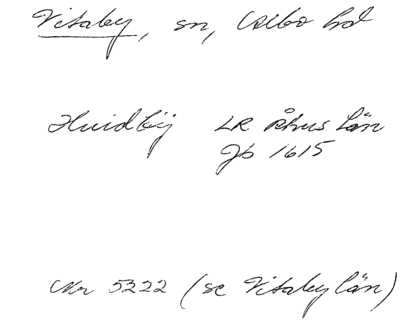 Vitaby, sn, Albo hd
Huidbÿ LR Åhus län
Jb 1615
Nr 5222 (se Vitaby län)